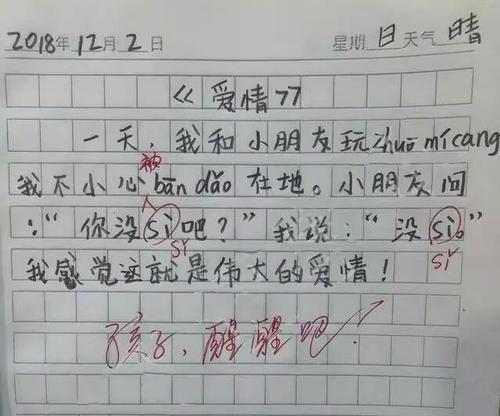 2018年12月2日 星期日天气晴
《爱情》
一天，我和小朋友玩zhuō mícang
被
我不小心bān dǎo在地。小朋友问
：“你没sì吧？”我说：“没sì。”
sǐ sǐ
我感觉这就是伟大的爱情！
孩子，醒醒吧！